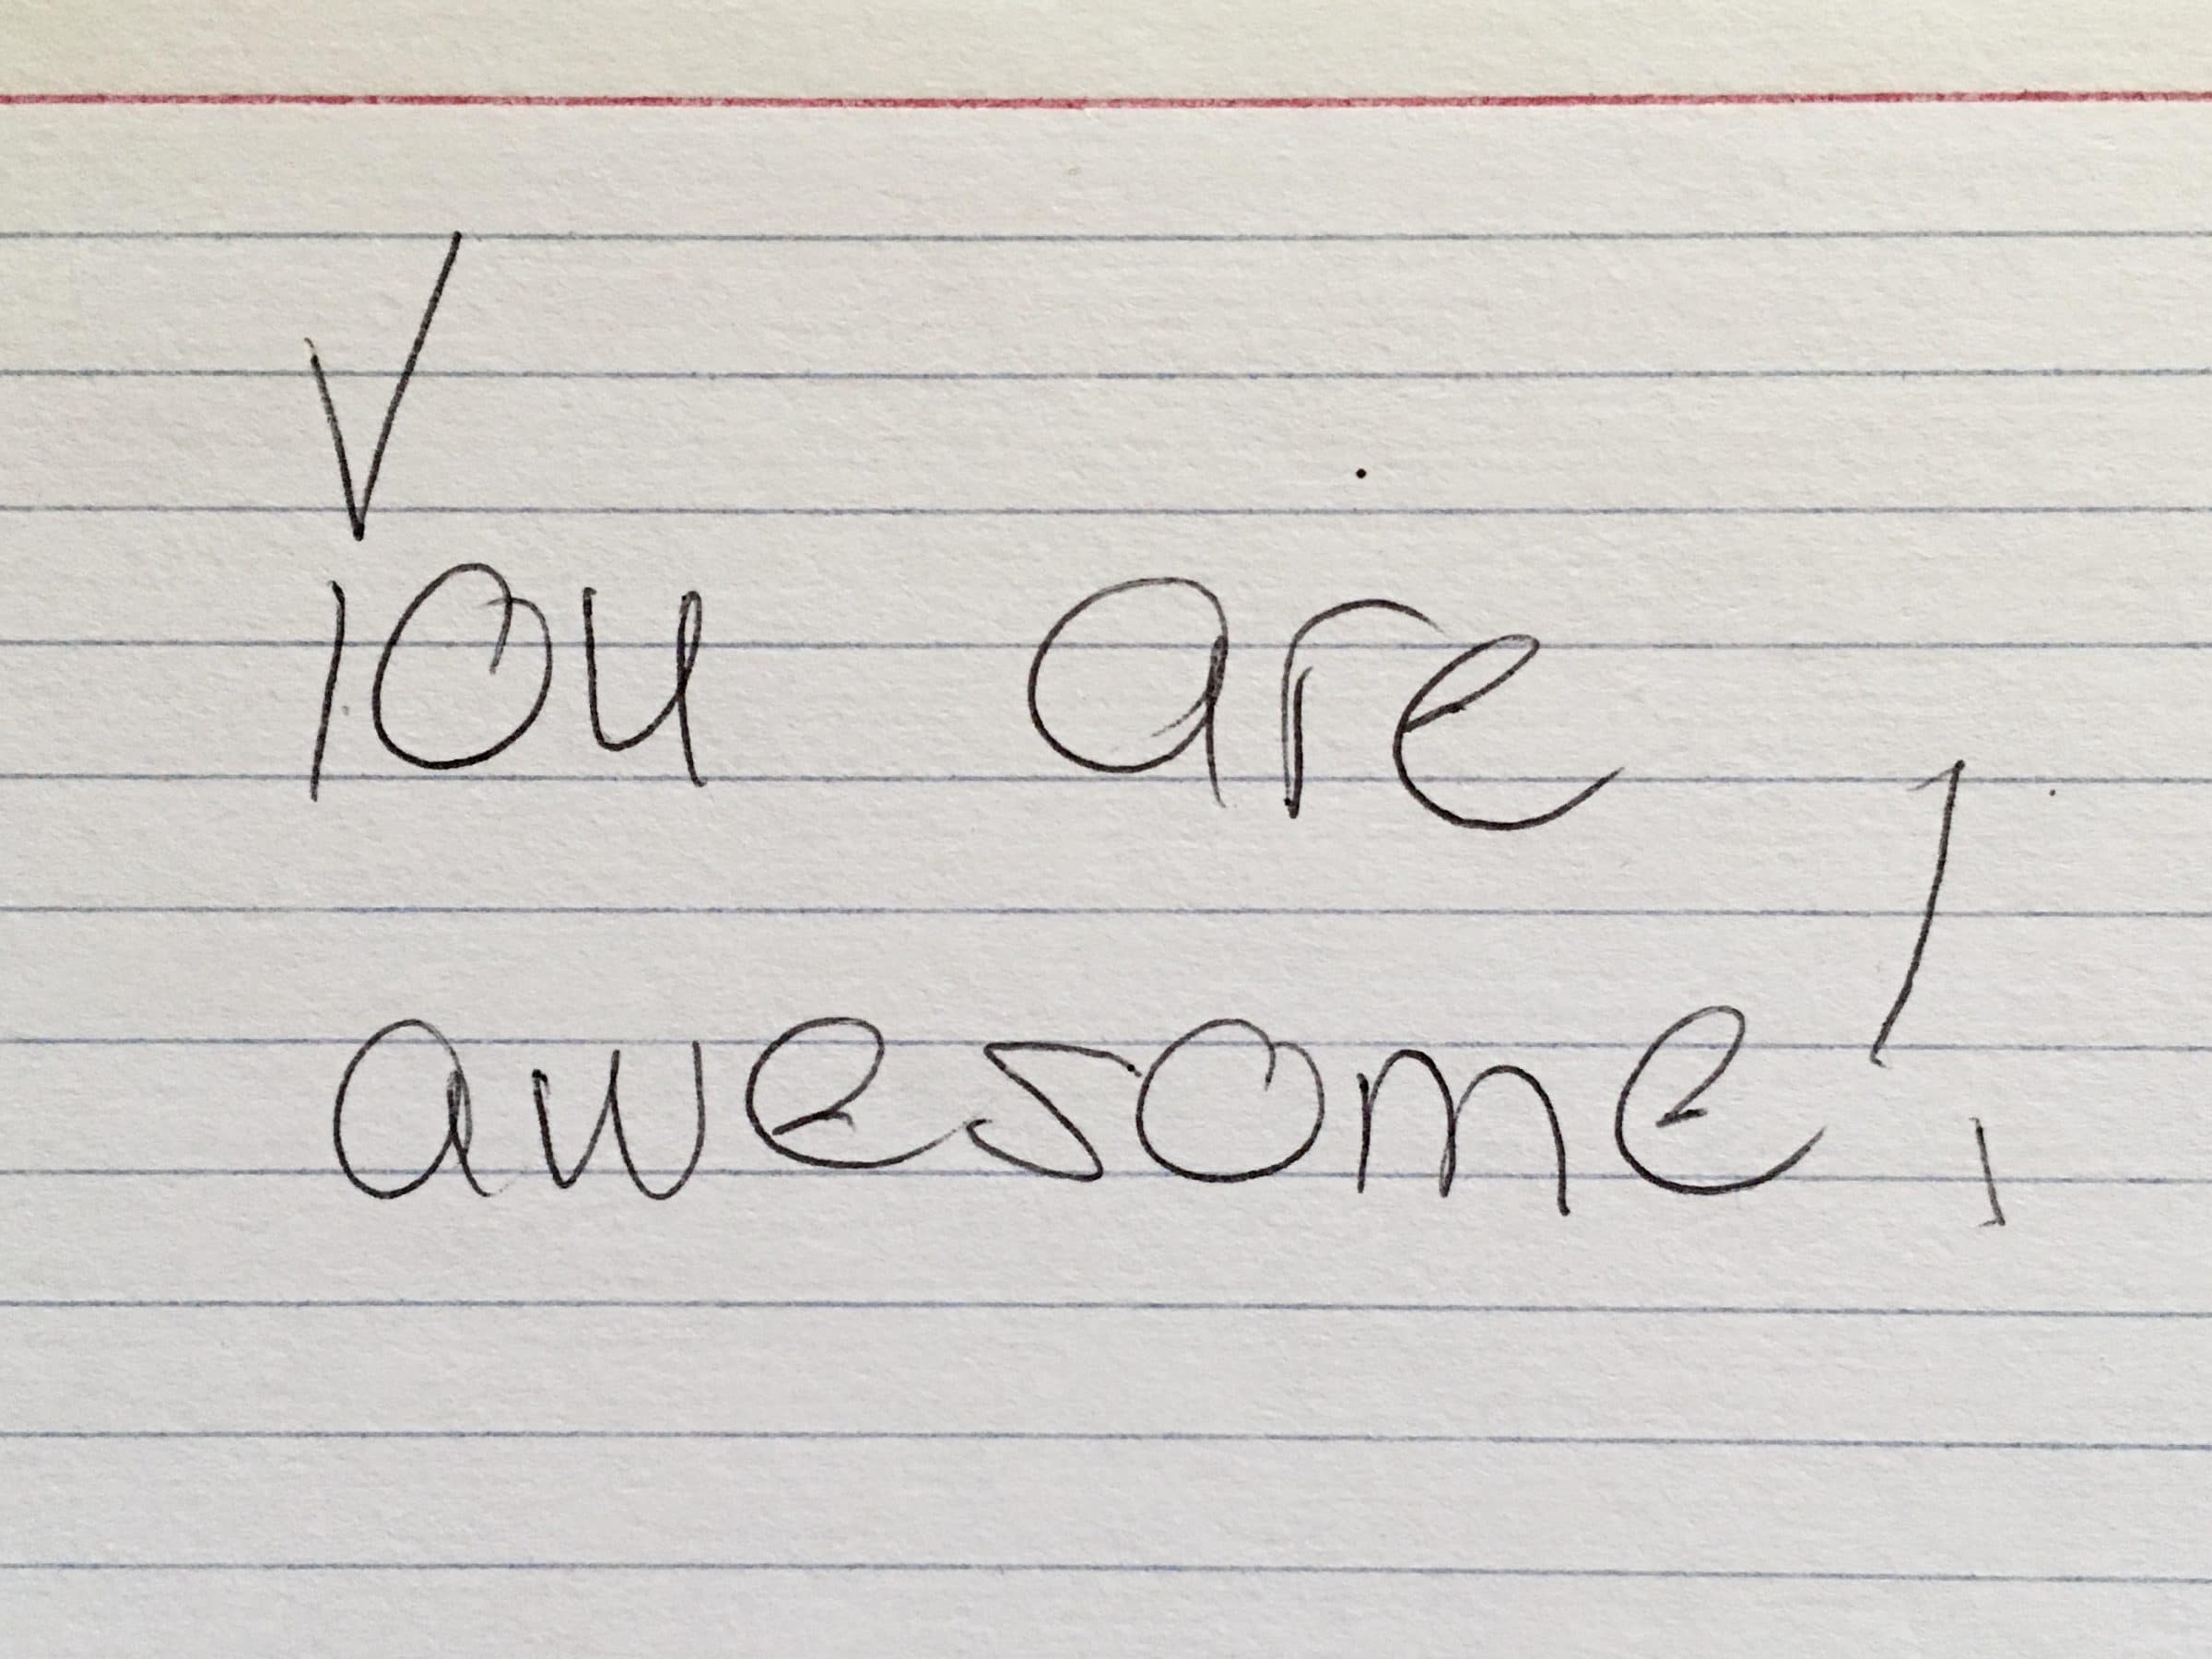 You are
awesome!